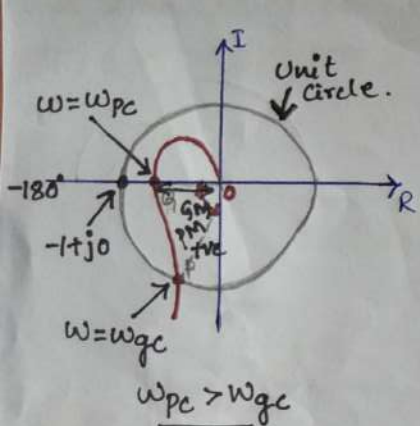 I
Unit
Circle.
ω=ωpc
-180°
0
R
GM
PM
+ve
-1+j0
ω=ωgc
ωpc > ωgc